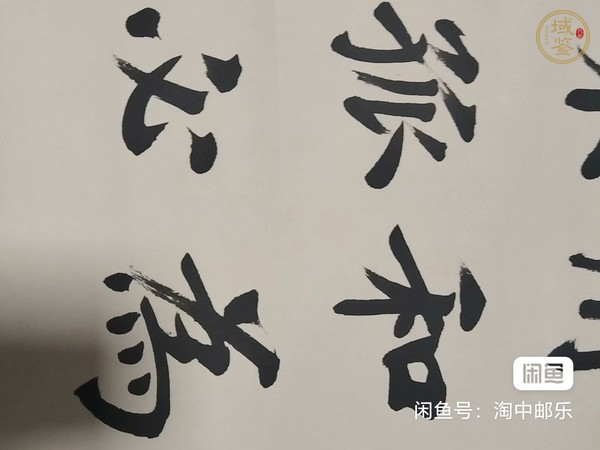 和為
孤必
域鉴
闲鱼
闲鱼号：淘中邮乐